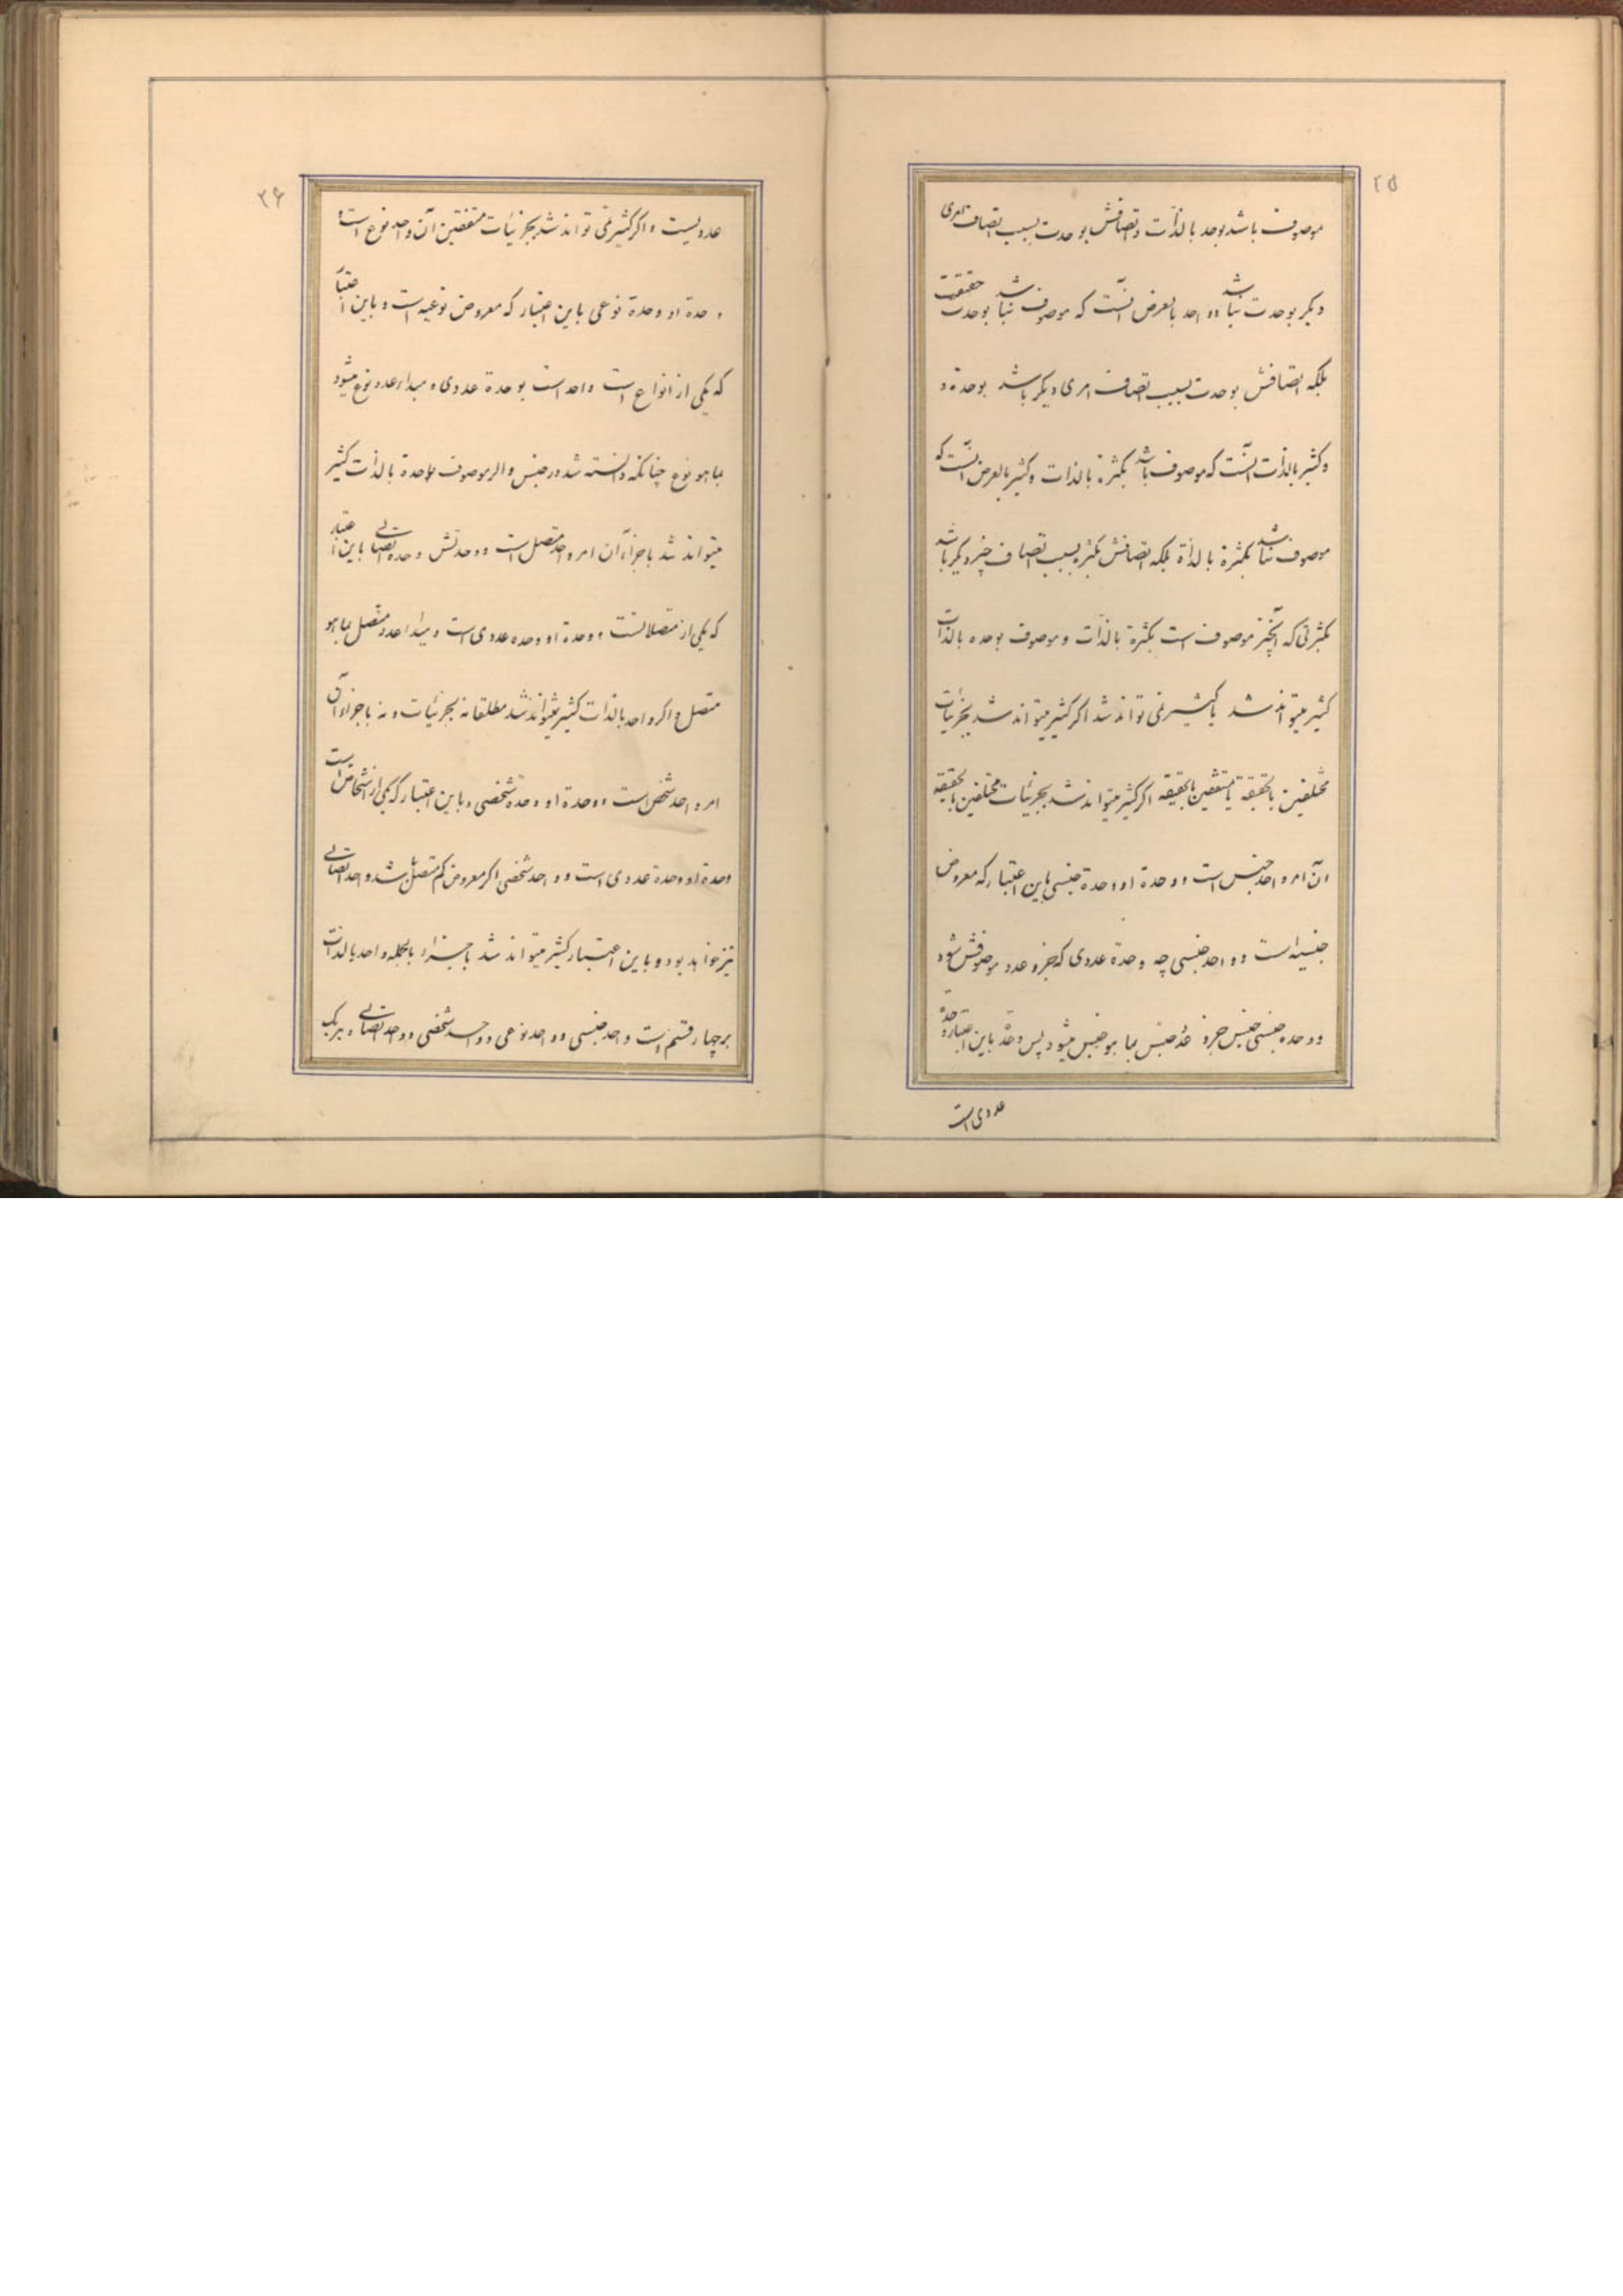 ۲۵
موصوف باشد بوحد بالذات و تصافش بوحدت بسبب اتصاف امری
دیکر بوحدت نباشد و واحد بالعرض آنست که موصوف نباشد بوحدت حقیقت
بلکه اتصافش بوحدت بسبب اتصاف امری دیکر باشد بوحدة و
و کثیر بالذات آنست که موصوف باشد بکثرة بالذات و کثیر بالعرض آنست که
موصوف نباشد بکثرة بالذاة بلکه اتصافش بکثره بسبب اتصاف چیز دیکر باشد
بکثرتی که آنچیز موصوف است بکثرة بالذات و موصوف بوحده بالذات
کثیر میتواند شد یا کثیر نمی تواند شد اکر کثیر میتواند شد بجزئیات
مختلفین بالحقیقة یا متفقین بالحقیقه اکر کثیر میتواند شد بجزئیات مختلفین بالحقیقه
آن امر واحد جنس است و وحدة او وحدة جنسی باین اعتبار که معروض
جنسیه است و واحد جنسی چه وحدة عددی که جزو عدد موصوفش شود
و وحده جنسی جنس جزو جنس بما هو جنس میشود پس وحدة باین اعتبار وحدة
عددی است
۲۶
عددیست و اکر کثیر نمی تواند شد بجزئیات متفقین آن واحد نوع است و
وحدة او وحدة نوعی باین اعتبار که معروض نوعیه است و باین اعتبار
که یکی از انواع است واحد است بوحدة عددی و مبداء عدد نوع میشود
بما هو نوع چنانکه دانسته شد در جنس و اکر موصوف بوحدة بالذات کثیر
میتواند شد باجزاء آن امر واحد متصل است و وحدتش وحده اتصالی باین اعتبار
که یکی از متصلاتست و وحدة او وحده عددی است و مبداء عدد متصل بما هو
متصل و اکر واحد بالذات کثیر نمیتواند شد مطلقا نه بجزئیات و نه باجزاء آن
امر واحد شخص است و وحدة او وحده شخصی و باین اعتبار که یکی از اشخاص است
وحدة او وحدة عددی است و واحد شخصی اکر معروض کم متصل باشد واحد اتصالی
نیز خواهد بود و باین اعتبار کثیر میتواند شد باجزاء بالجمله واحد بالذات
بر چهار قسم است واحد جنسی و واحد نوعی و واحد شخصی و واحد اتصالی و هر یک